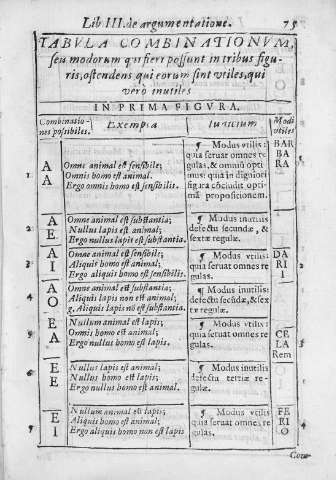 Lib III. de argumentatione. 75
TABULA COMBINATIONUM,
seu modorum qui fieri possunt in tribus figu-
ris, ostendens qui eorum sint utiles, qui
verò inutiles
IN PRIMA FIGURA.
Combinatio-
nes possibiles.
Exempla
Iudicium
Modi
utiles
1.
A
A
Omne animal est sensibile;
Omnis homo est animal.
Ergo omnis homo est sensibilis.
¶ Modus utilis:
quia seruat omnes re
gulas, & omniũ opti-
mus: quia in digniori
figura cõcludit opti-
mã propositionem.
BAR
BA
RA
2
A
E
Omne animal est substantia;
Nullus lapis est animal;
Ergo nullus lapis est substantia.
¶ Modus inutilis
defectu secundæ, &
sextæ regulæ.
3
A
I
Omne animal est sensibile;
Aliquis homo est animal;
Ergo aliquis homo est sensibilis.
¶ Modus utilis:
quia seruat omnes re
gulas.
DA
RI
I
4
A
O
Omne animal est substantia;
Aliquis lapis non est animal;
g. Aliquis lapis nõ est substantia.
¶ Modus inutilis:
defectu secũdæ, & sex
tæ regulæ.
5
E
A
Nullum animal est lapis;
Omnis homo est animal;
Ergo nullus homo est lapis.
¶ Modus utilis:
quia seruat omnes re
gulas.
CE
LA
Rem
6
E
E
Nullus lapis est animal;
Nullus homo est lapis;
Ergo nullus homo est animal.
¶ Modus inutilis
defectu tertiæ re-
gulæ.
7
E
I
Nullum animal est lapis;
Aliquis homo est animal;
Ergo aliquis homo non est lapis
¶ Modus utilis
quia seruat omnes re
gulas.
FE
RI
O